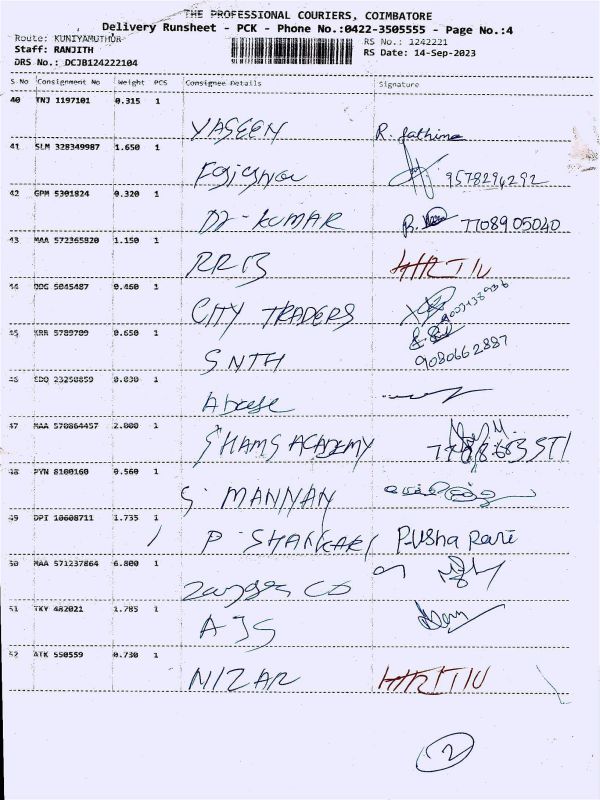 THE PROFESSIONAL COURIERS, COIMBATORE
Delivery Runsheet - PCK - Phone No.:0422-3505555 - Page No.:4
Route: KUNIYAMUTHUR RS No.: 1242221
Staff: RANJITH RS Date: 14-Sep-2023
DRS No.: DCJB124222104
S No Consignment No Weight PCS Consignee Details Signature
40 TNJ 1197101 0.315 1
YASEEN R. fathima
41 SLM 328349987 1.650 1
9578296292
42 GPM 5301824 0.320 1
Dr - KUMAR B. 7708905040
43 MAA 572365820 1.150 1
RRB
44 ODG 5045487 0.460 1
CITY TRADERS
45 KRR 5789789 0.650 1
SNTH 9080662887
46 EDQ 23250859 0.030 1
47 MAA 570864457 2.000 1
SHAMS ACADEMY
48 PYN 8100160 0.560 1
S. MANNAN
49 DPI 10608711 1.735 1
P. SHANKARI P.Usha Rani
50 MAA 571237864 6.800 1
51 TKY 482021 1.785 1
AJS
52 ATK 550559 0.730 1
NIZAR
2